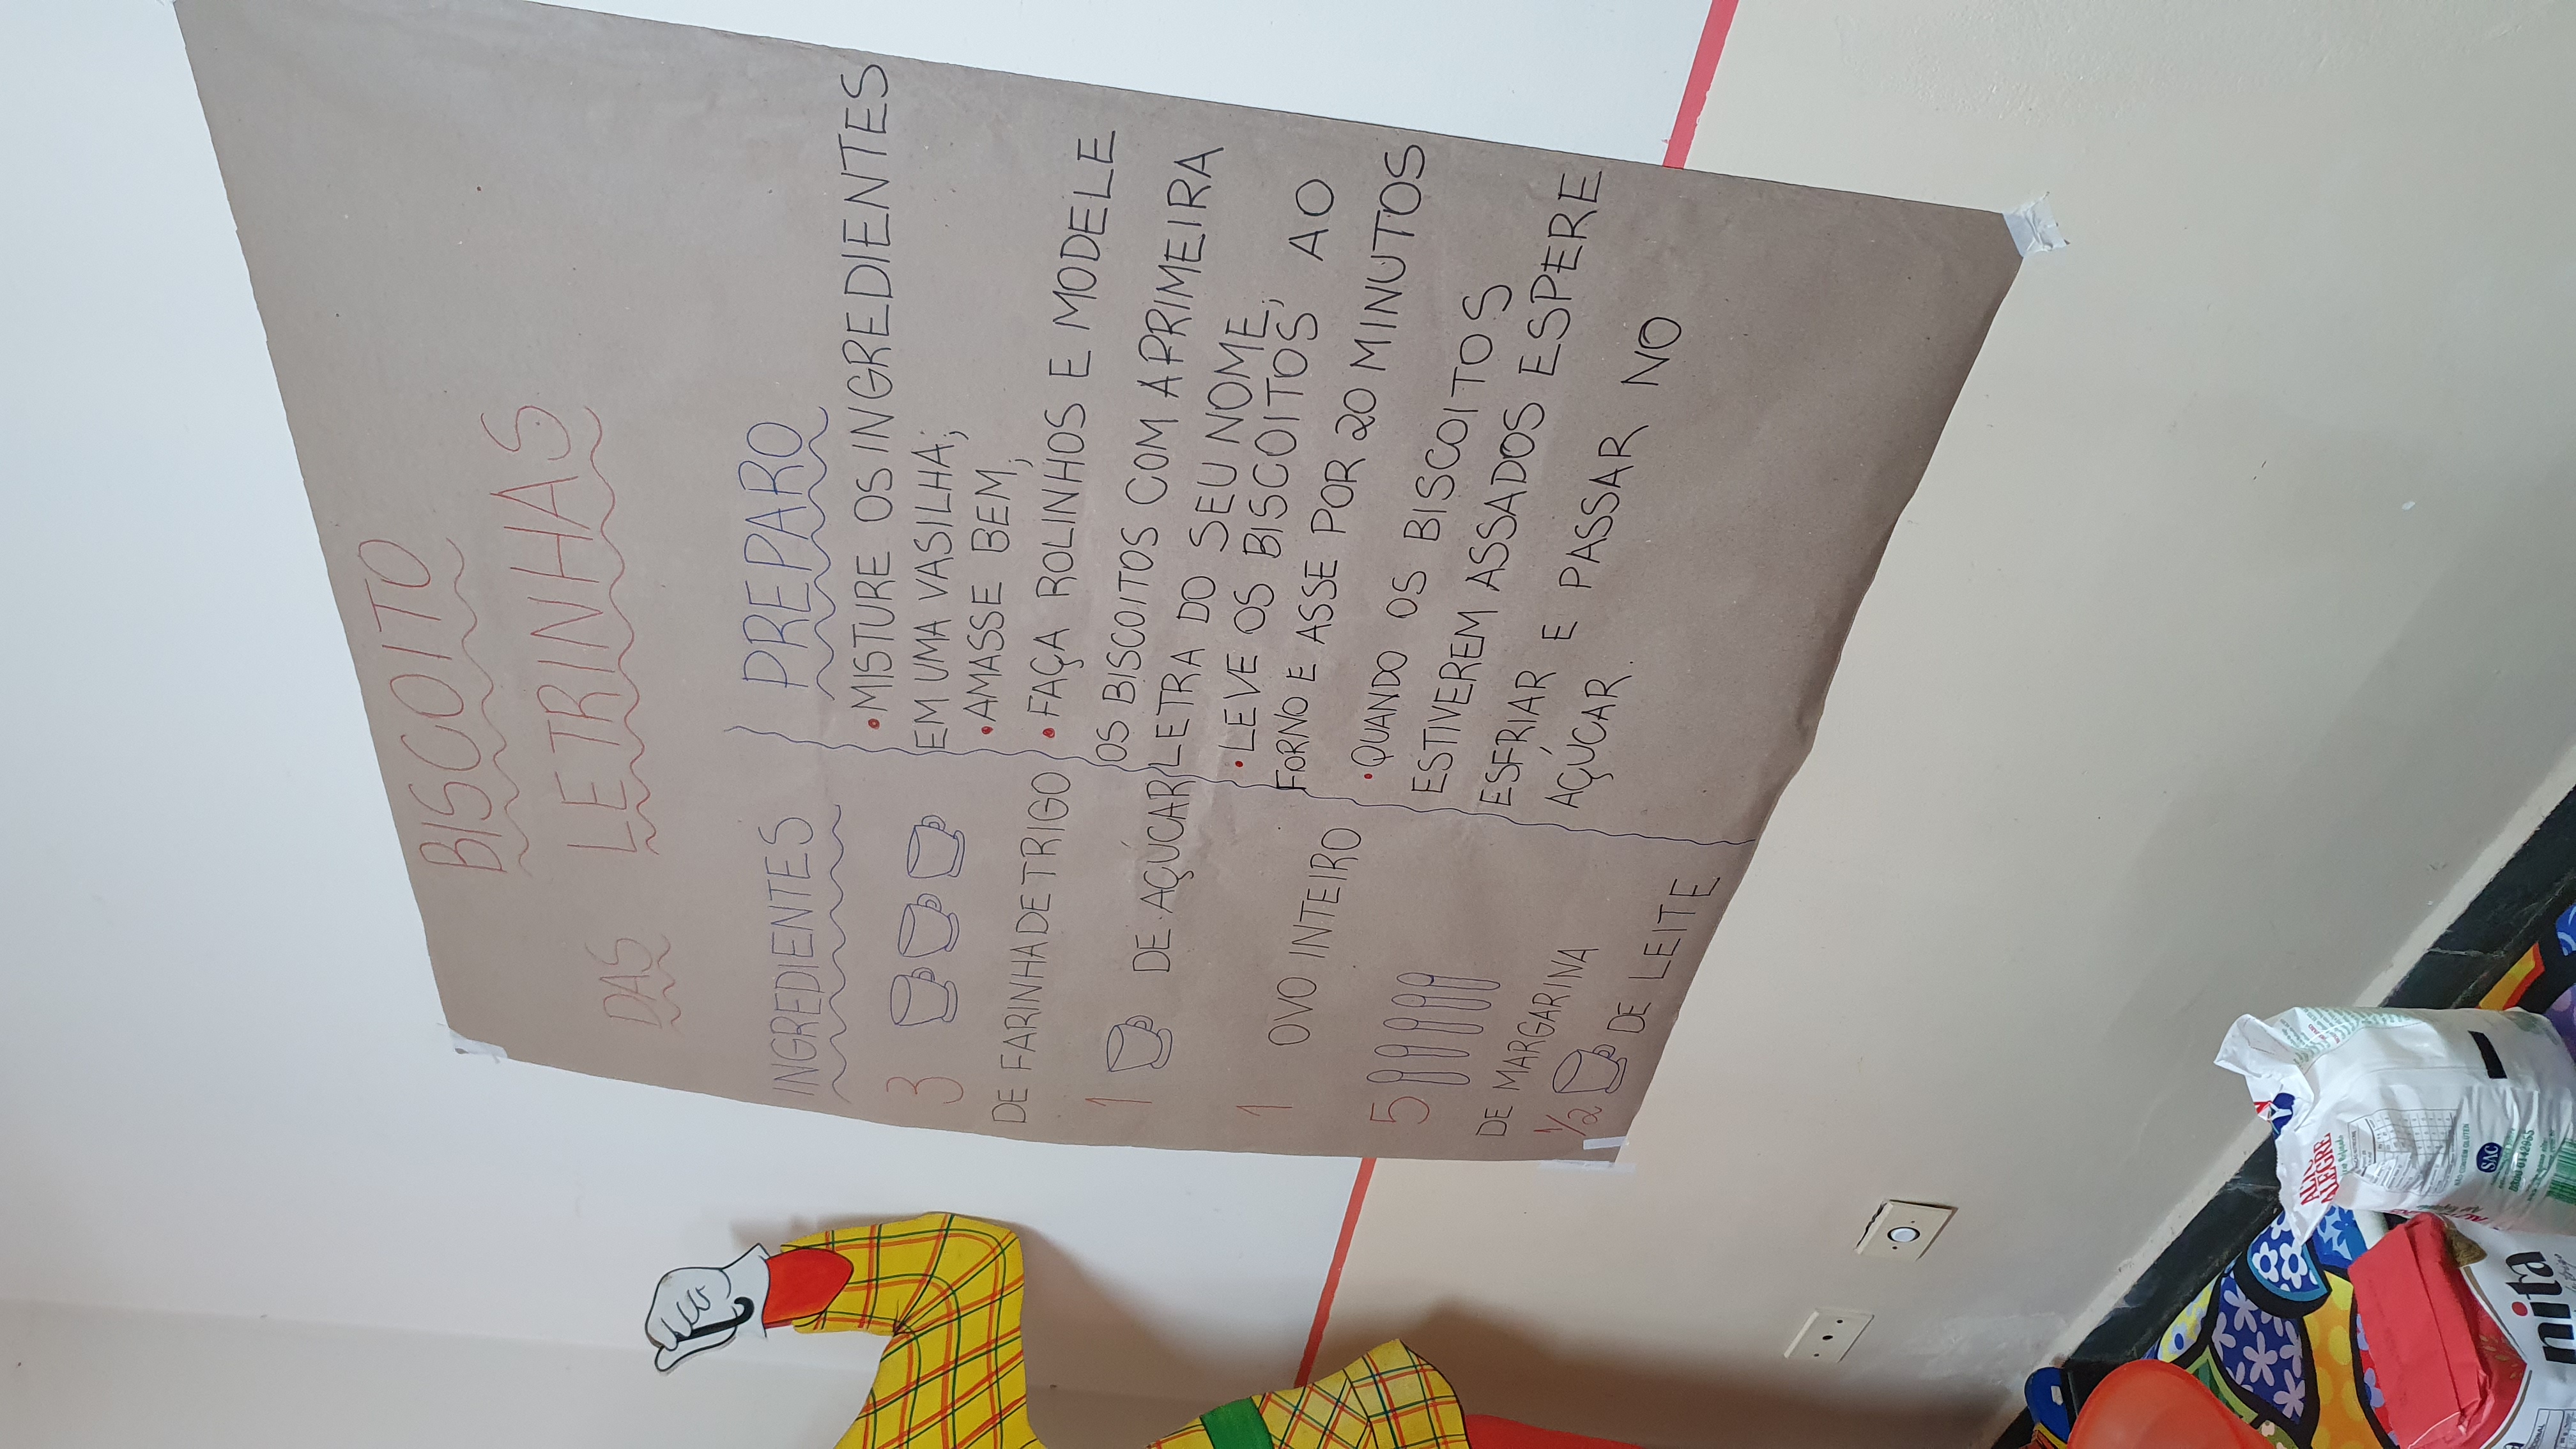 BISCOITO
DAS LETRINHAS
INGREDIENTES
3
DE FARINHA DE TRIGO
1 DE AÇÚCAR
1 OVO INTEIRO
5
DE MARGARINA
1/2 DE LEITE
PREPARO
•MISTURE OS INGREDIENTES
EM UMA VASILHA;
•AMASSE BEM;
•FAÇA ROLINHOS E MODELE
OS BISCOITOS COM A PRIMEIRA
LETRA DO SEU NOME;
•LEVE OS BISCOITOS AO
FORNO E ASSE POR 20 MINUTOS
•QUANDO OS BISCOITOS
ESTIVEREM ASSADOS ESPERE
ESFRIAR E PASSAR NO
AÇÚCAR.
ALTO
ALEGRE
NÃO CONTÉM GLÚTEN
SAC
0800 0142955
nita